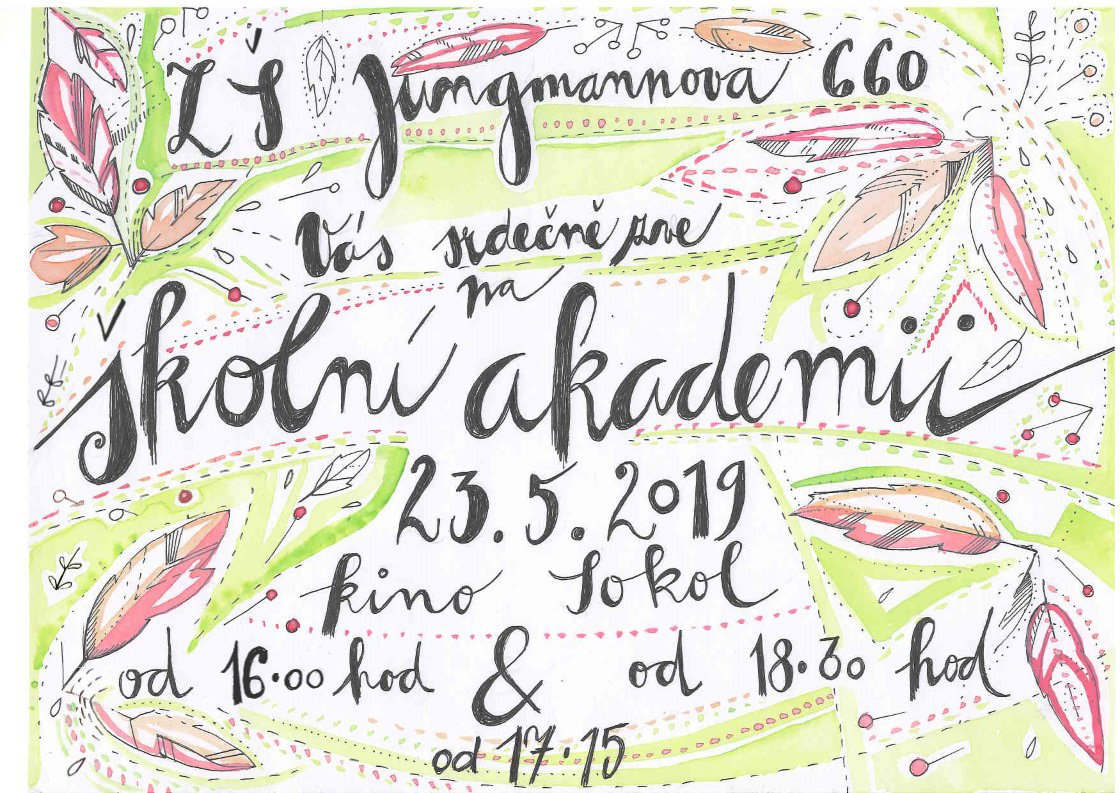 ZŠ Jungmannova 660
Vás srdečně zve
na
školní akademii
23.5.2019
kino Sokol
od 16.00 hod & od 18.30 hod
od 17.15